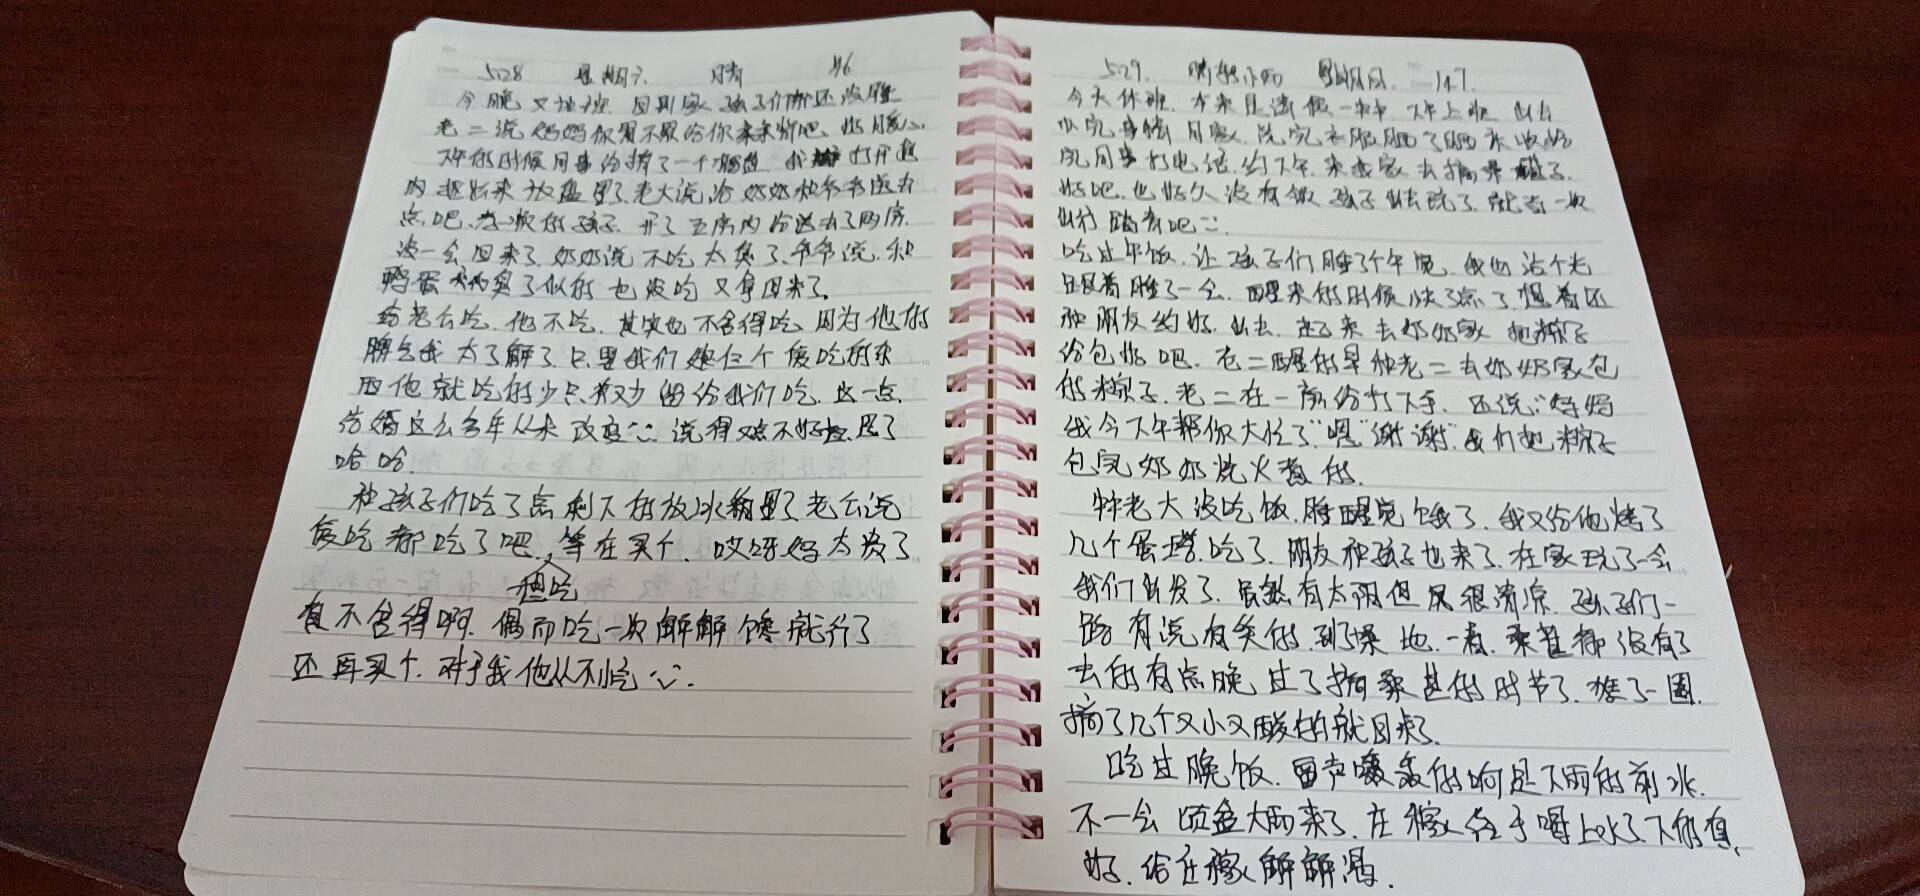 5.28 星期六 晴 146
今晚又加班 回到家 孩子们都还没睡
老二说妈妈你累不累给你揉揉肩吧 好
的时候同事给拿了一个榴莲 我 打开把
肉 出来放盘里了 老大说 给奶奶和爷爷送去
点吧 的孩子 开了五房肉给送去了两房
没一会回来了 奶奶说不吃太臭了 爷爷说 和
鸭蛋 臭了似的 也没吃 又拿回来了
给老公吃 他不吃 其实他不舍得吃 因为他的
脾气我太了解了 只要我们娘仨个爱吃的东
西他就吃的少 留给我们吃 这一点
结婚这么多年从未改变 说得 不好 恩了
哈哈
和孩子们吃了点 剩下的放冰箱里了 老公说
爱吃都吃了吧 等在买个 哎呀妈太贵了
想吃
真不舍得啊 偶而吃一次解解馋就行了
还再买个 对于我他从不
5.29. 晴转小雨 星期日 147
今天休班 本来是请假一 下午上班 出去
办完事 回家 洗完衣服 晒了晒 收好
同事打电话 约下午来我家去摘桑葚子
好吧 也好久没有领孩子出去玩了 就 一次
出行踏青吧
吃过午饭 让孩子们睡了个午觉 我也 个
跟着睡了一会 醒来的时候 快 点了 想着还
和朋友约好 出去 起来去奶奶家把粽子
给包好吧 老二醒的早和老二去奶奶家包
的粽子 老二在一旁给打下手 还说:"妈妈
我今下午帮你大忙了""嗯"谢谢" 我们把粽子
包完奶奶烧火煮的
老大没吃饭 睡醒觉饿了 我又给他烤了
几个蛋挞吃了 朋友和孩子也来了 在家玩了一会
我们出发了 虽然有太阳但风很清凉 孩子们一
路有说有笑的 到了桑地 一看 桑葚都没有了
去的有点晚 过了摘桑葚的时节了 一圈
摘了几个又小又酸的就回来了
吃过晚饭 雷声轰轰的响是下雨的前
不一会 倾盆大雨来了 庄稼终于喝上水了 下的真
好 给庄稼解解渴